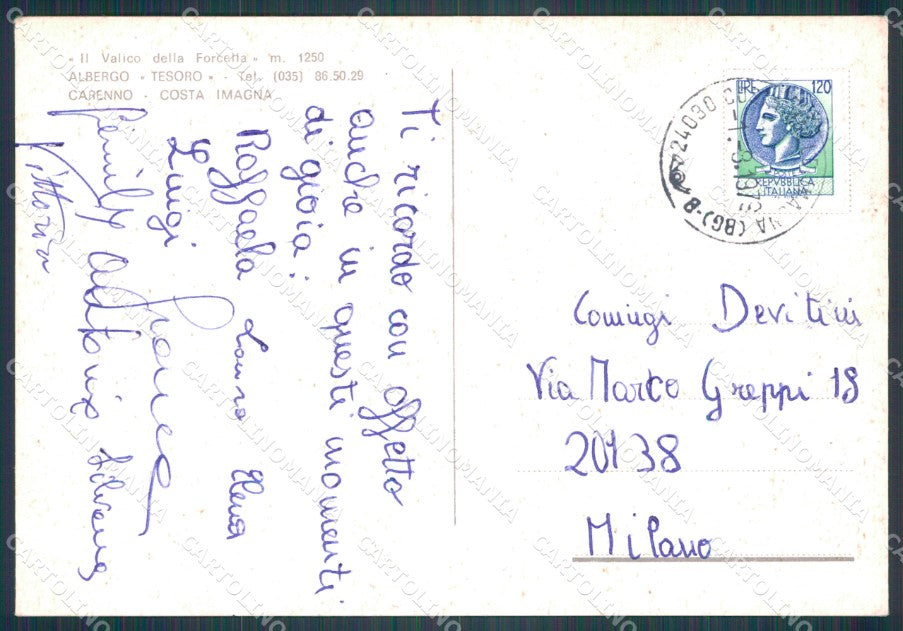 « Il Valico della Forcella » m. 1250
ALBERGO « TESORO » - Tel. (035) 86.50.29
CARENNO - COSTA IMAGNA
Ti ricordo con affetto
anche in questi momenti
di gioia!
Raffaela Laura Elena
Luigi
Vittoria
Antonio Silvana
LIRE 120
REPVBBLICA
ITALIANA
24030
(BG)
Coniugi Devitini
Via Marco Greppi 18
20138
Milano
CARTOLINOMANIA